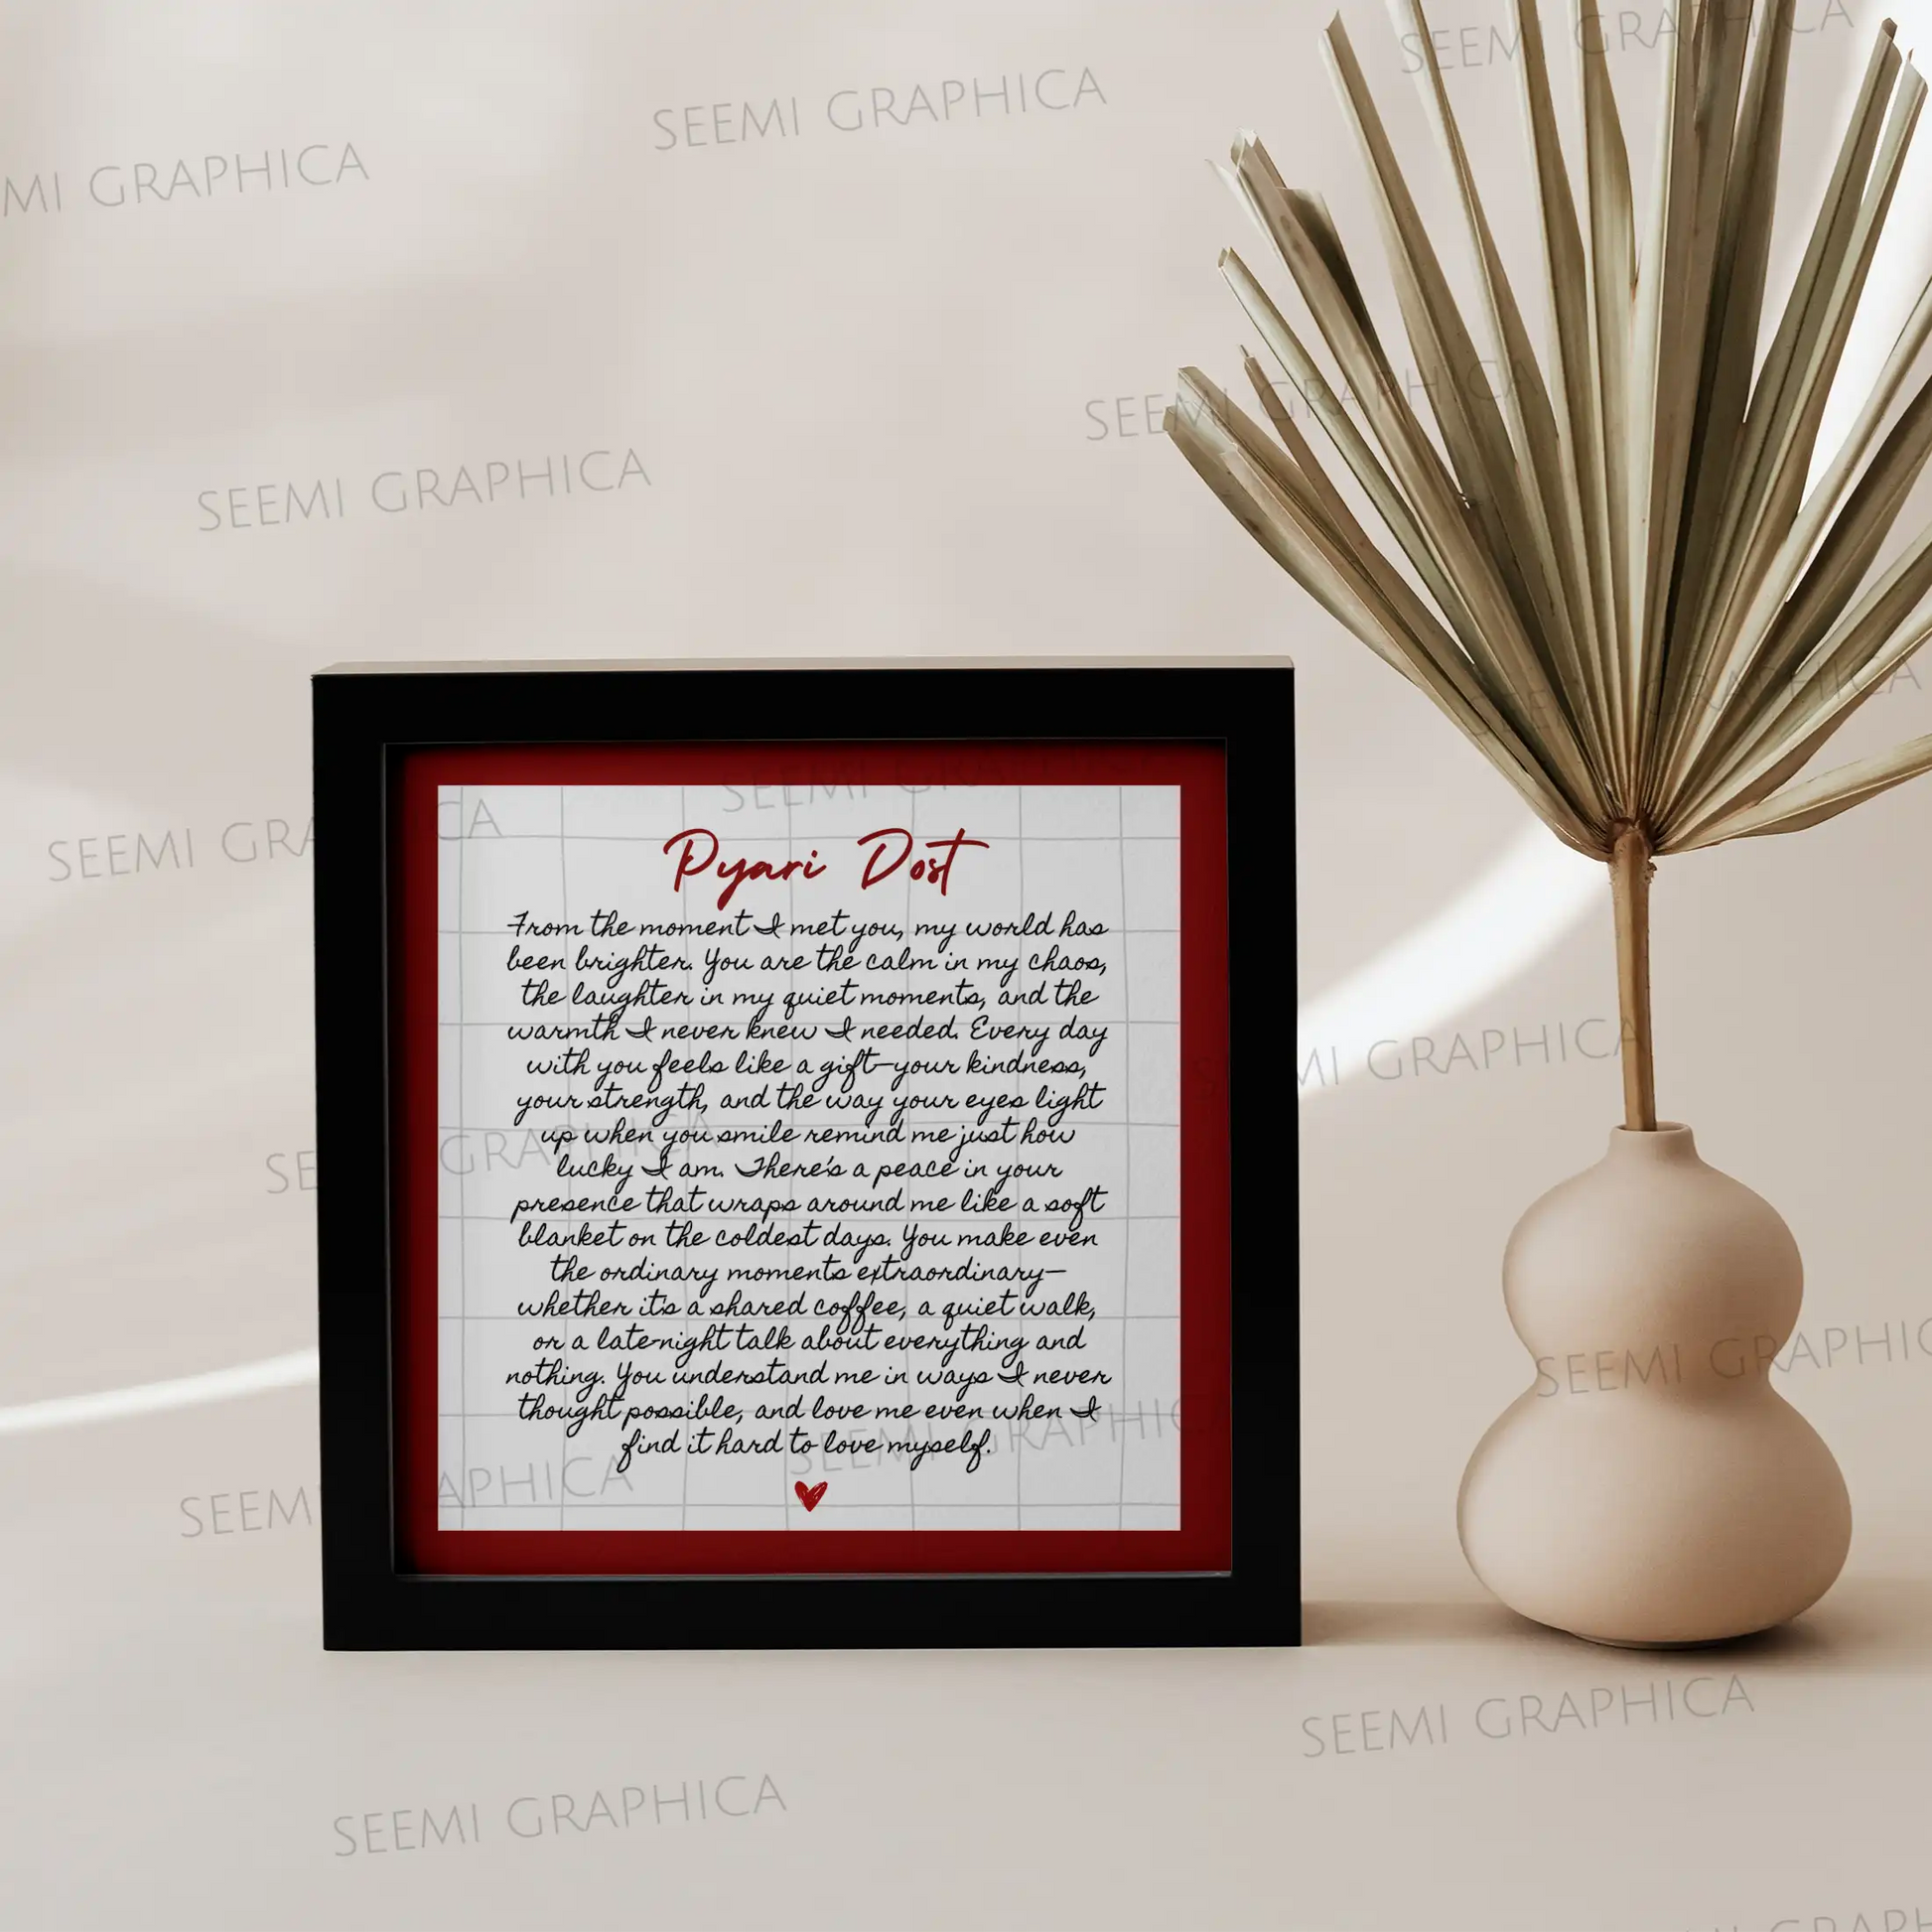 SEEMI GRAPHICA
SEEMI GRAPHICA
MI GRAPHICA
SEEMI GRAPHICA
SEEMI GRAPHICA
SEEMI GRAPHICA
SEEMI GRAPHICA
Pyari Dost
From the moment I met you, my world has
been brighter. You are the calm in my chaos,
the laughter in my quiet moments, and the
warmth I never knew I needed. Every day
with you feels like a gift—your kindness,
your strength, and the way your eyes light
up when you smile remind me just how
lucky I am. There's a peace in your
presence that wraps around me like a soft
blanket on the coldest days. You make even
the ordinary moments extraordinary—
whether it's a shared coffee, a quiet walk,
or a late-night talk about everything and
nothing. You understand me in ways I never
thought possible, and love me even when I
find it hard to love myself.
MI GRAPHICA
SEEMI GRAPHIC
SEEMI GRAPHIC
SEEM
APHICA
SEEMI GRAPHICA
SEEMI GRAPHICA